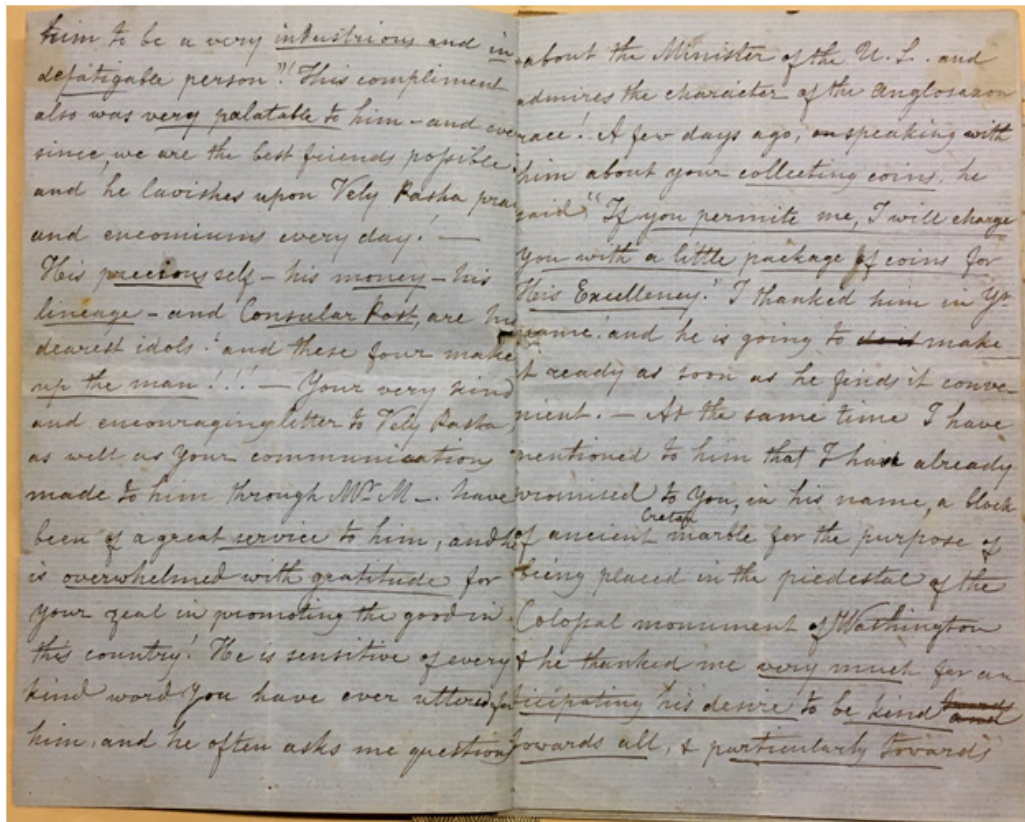 him to be a very industrious and in-
defatigable person"! This compliment
also was very palatable to him - and ever
since, we are the best friends possible
and he lavishes upon Vely Pasha prai
and encomiums every day! —
His precious self - his money - his
lineage - and Consular Post, are his
dearest idols! and these four make
up the man!!! — Your very kind
and encouraging letter to Vely Pasha
as well as Your communication
made to him through Mr. M—. have
been of a great service to him, and he
is overwhelmed with gratitude for
your zeal in promoting the good in
this country! He is sensitive of every
kind word You have ever uttered for
him, and he often asks me questions
about the Minister of the U. S. and
admires the character of the Anglosaxon
race! A few days ago, on speaking with
him about your collecting coins, he
said "If you permite me, I will charge
You with a little package of coins for
His Excellency." I thanked him in Yr
name! and he is going to make
it ready as soon as he finds it conve-
nient. — At the same time I have
mentioned to him that I had already
promised to You, in his name, a block
of ancient Cretan marble for the purpose of
being placed in the piedestal of the
Colossal monument of Washington
& he thanked me very much for an-
ticipating his desire to be kind
towards all, & particularly towards